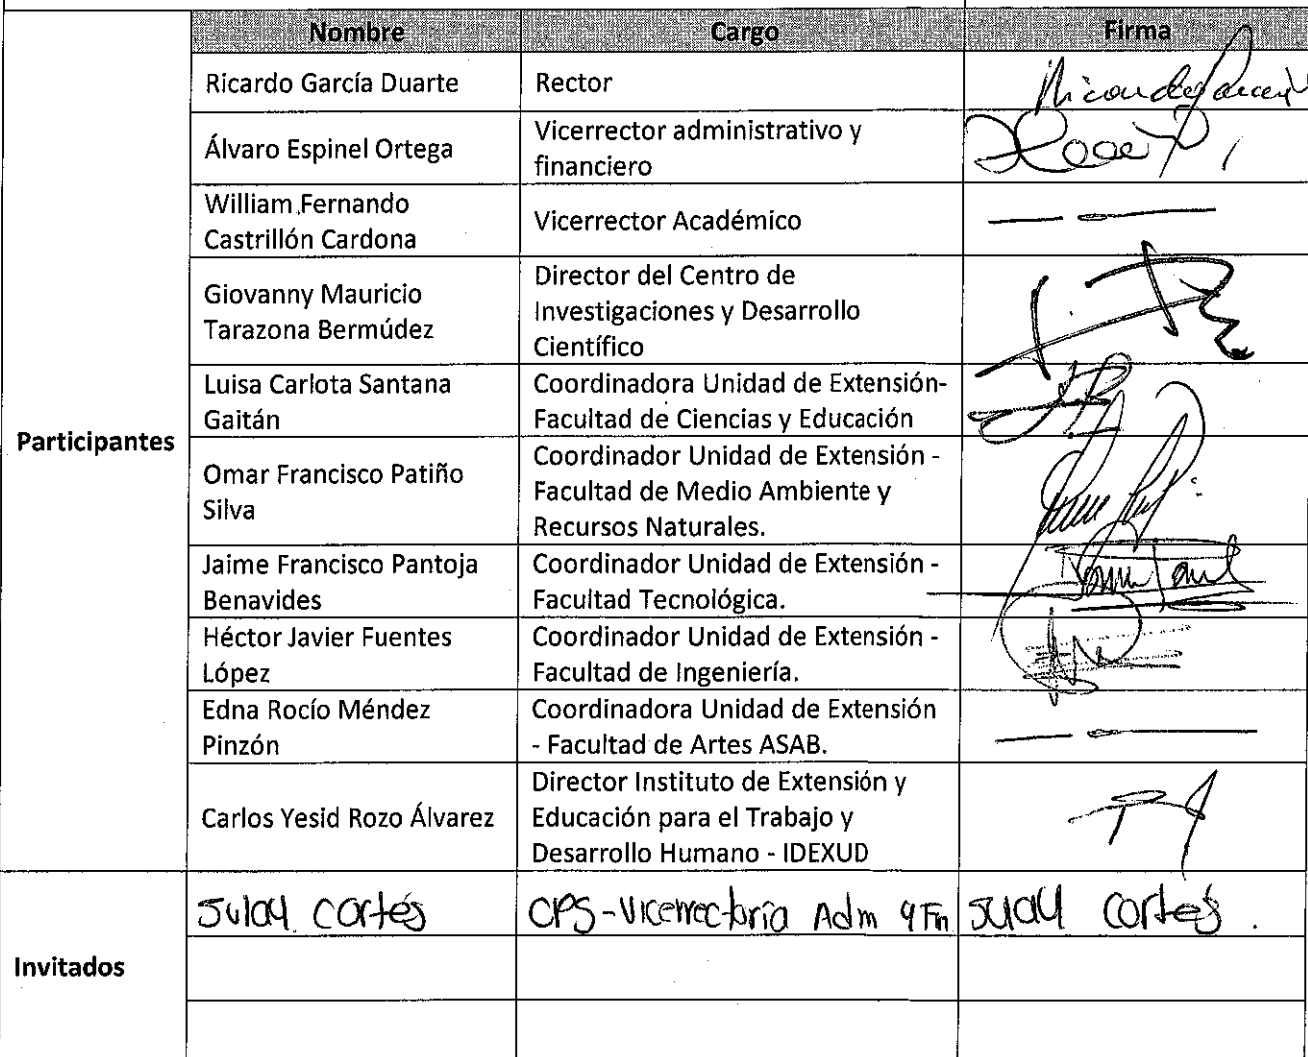 Nombre Cargo Firma
Participantes
Ricardo García Duarte Rector
Álvaro Espinel Ortega Vicerrector administrativo y
financiero
William Fernando
Castrillón Cardona Vicerrector Académico
Giovanny Mauricio
Tarazona Bermúdez Director del Centro de
Investigaciones y Desarrollo
Científico
Luisa Carlota Santana
Gaitán Coordinadora Unidad de Extensión-
Facultad de Ciencias y Educación
Omar Francisco Patiño
Silva Coordinador Unidad de Extensión -
Facultad de Medio Ambiente y
Recursos Naturales.
Jaime Francisco Pantoja
Benavides Coordinador Unidad de Extensión -
Facultad Tecnológica.
Héctor Javier Fuentes
López Coordinador Unidad de Extensión -
Facultad de Ingeniería.
Edna Rocío Méndez
Pinzón Coordinadora Unidad de Extensión
- Facultad de Artes ASAB.
Carlos Yesid Rozo Álvarez Director Instituto de Extensión y
Educación para el Trabajo y
Desarrollo Humano - IDEXUD
Invitados
cortés CPS-Vicerrectoría Adm y Fn cortés.